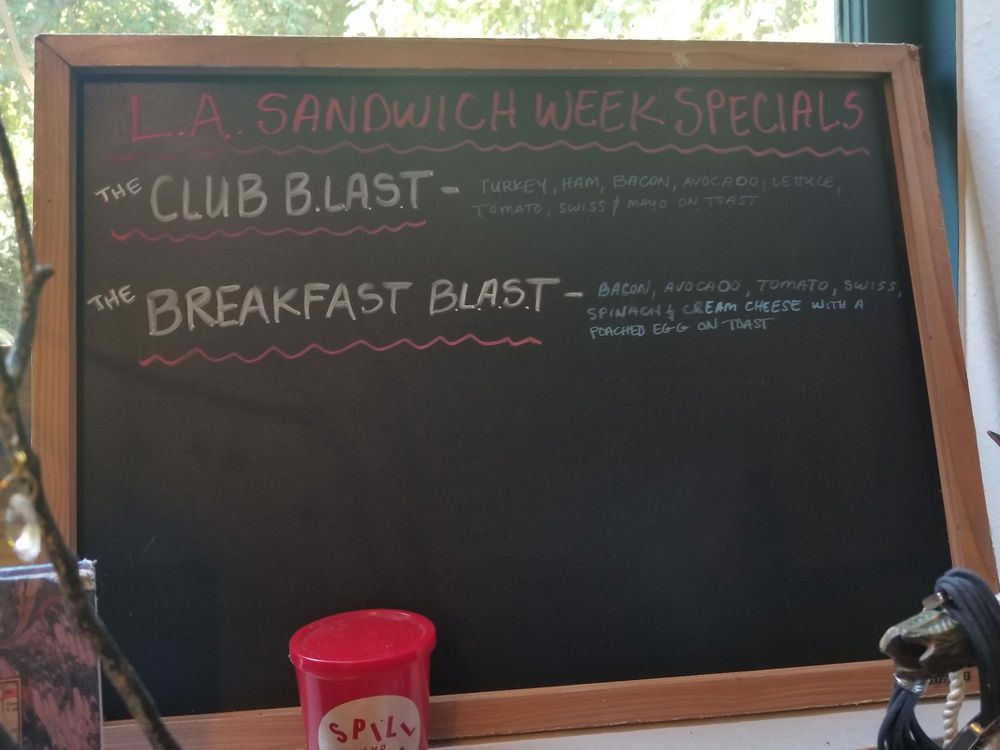 L.A. SANDWICH WEEK SPECIALS
THE CLUB B.L.A.S.T - TURKEY, HAM, BACON, AVOCADO, LETTUCE,
TOMATO, SWISS & MAYO ON TOAST
THE BREAKFAST B.L.A.S.T - BACON, AVOCADO, TOMATO, SWISS,
SPINACH & CREAM CHEESE WITH A
POACHED EGG ON TOAST
SPILL